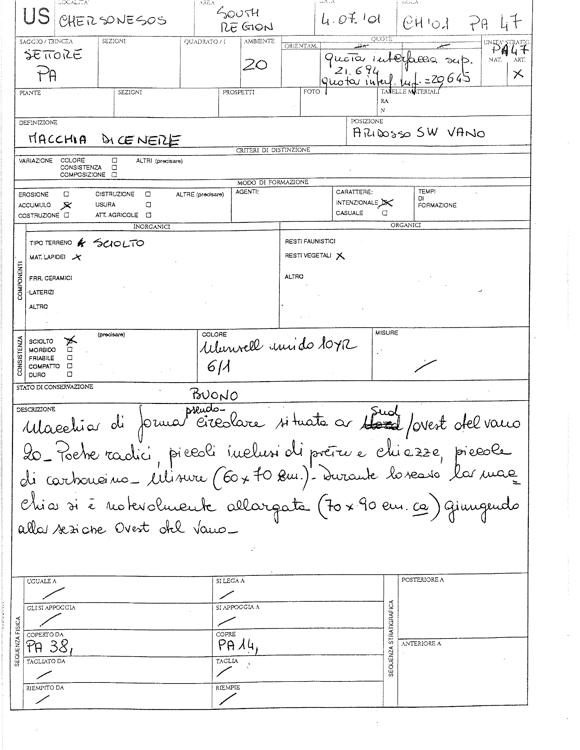 US
LOCALITA'
CHERSONESOS
AREA
SOUTH REGION
DATA
4.07.'01
SIGLA
CH'01 PA 47
SAGGIO / TRINCEA
SETTORE PA
SEZIONI
QUADRATO / I
AMBIENTE
20
QUOTE
ORIENTAM.
quota interfaccia sup. 21.694
quota interf. inf. = 29645
UNITA' STRATIG.
PA47
NAT.
ART.
X
PIANTE
SEZIONI
PROSPETTI
FOTO
TABELLE MATERIALI
RA
N
DEFINIZIONE
MACCHIA DI CENERE
POSIZIONE
A RIDOSSO SW VANO
CRITERI DI DISTINZIONE
VARIAZIONE COLORE ☐ ALTRI (precisare)
CONSISTENZA ☐
COMPOSIZIONE ☐
MODO DI FORMAZIONE
EROSIONE ☐ DISTRUZIONE ☐ ALTRE (precisare)
ACCUMULO X USURA ☐
COSTRUZIONE ☐ ATT. AGRICOLE ☐
AGENTI:
CARATTERE:
INTENZIONALE X
CASUALE ☐
TEMPI
DI
FORMAZIONE
COMPONENTI
INORGANICI
TIPO TERRENO X SCIOLTO
MAT. LAPIDEI X
FRR. CERAMICI
LATERIZI
ALTRO
ORGANICI
RESTI FAUNISTICI
RESTI VEGETALI X
ALTRO
CONSISTENZA
SCIOLTO X (precisare)
MORBIDO ☐
FRIABILE ☐
COMPATTO ☐
DURO ☐
COLORE
Munsell umido 10YR
6/1
MISURE
/
STATO DI CONSERVAZIONE
BUONO
DESCRIZIONE
Macchia di forma pseudo-circolare situata a Sud/ovest del vano
20_ Poche radici, piccoli inclusi di pietre e chiazze, piccole
di carboncino_ Misure (60 x 70 cm.)_ Durante lo scavo la mac=
chia si è notevolmente allargata (70 x 90 cm. ca) giungendo
alla sezione Ovest del vano_
SEQUENZA FISICA
UGUALE A
/
SI LEGA A
/
GLI SI APPOGGIA
/
SI APPOGGIA A
/
COPERTO DA
PA 38,
COPRE
PA 14,
TAGLIATO DA
/
TAGLIA
/
RIEMPITO DA
/
RIEMPIE
/
SEQUENZA STRATIGRAFICA
POSTERIORE A
ANTERIORE A